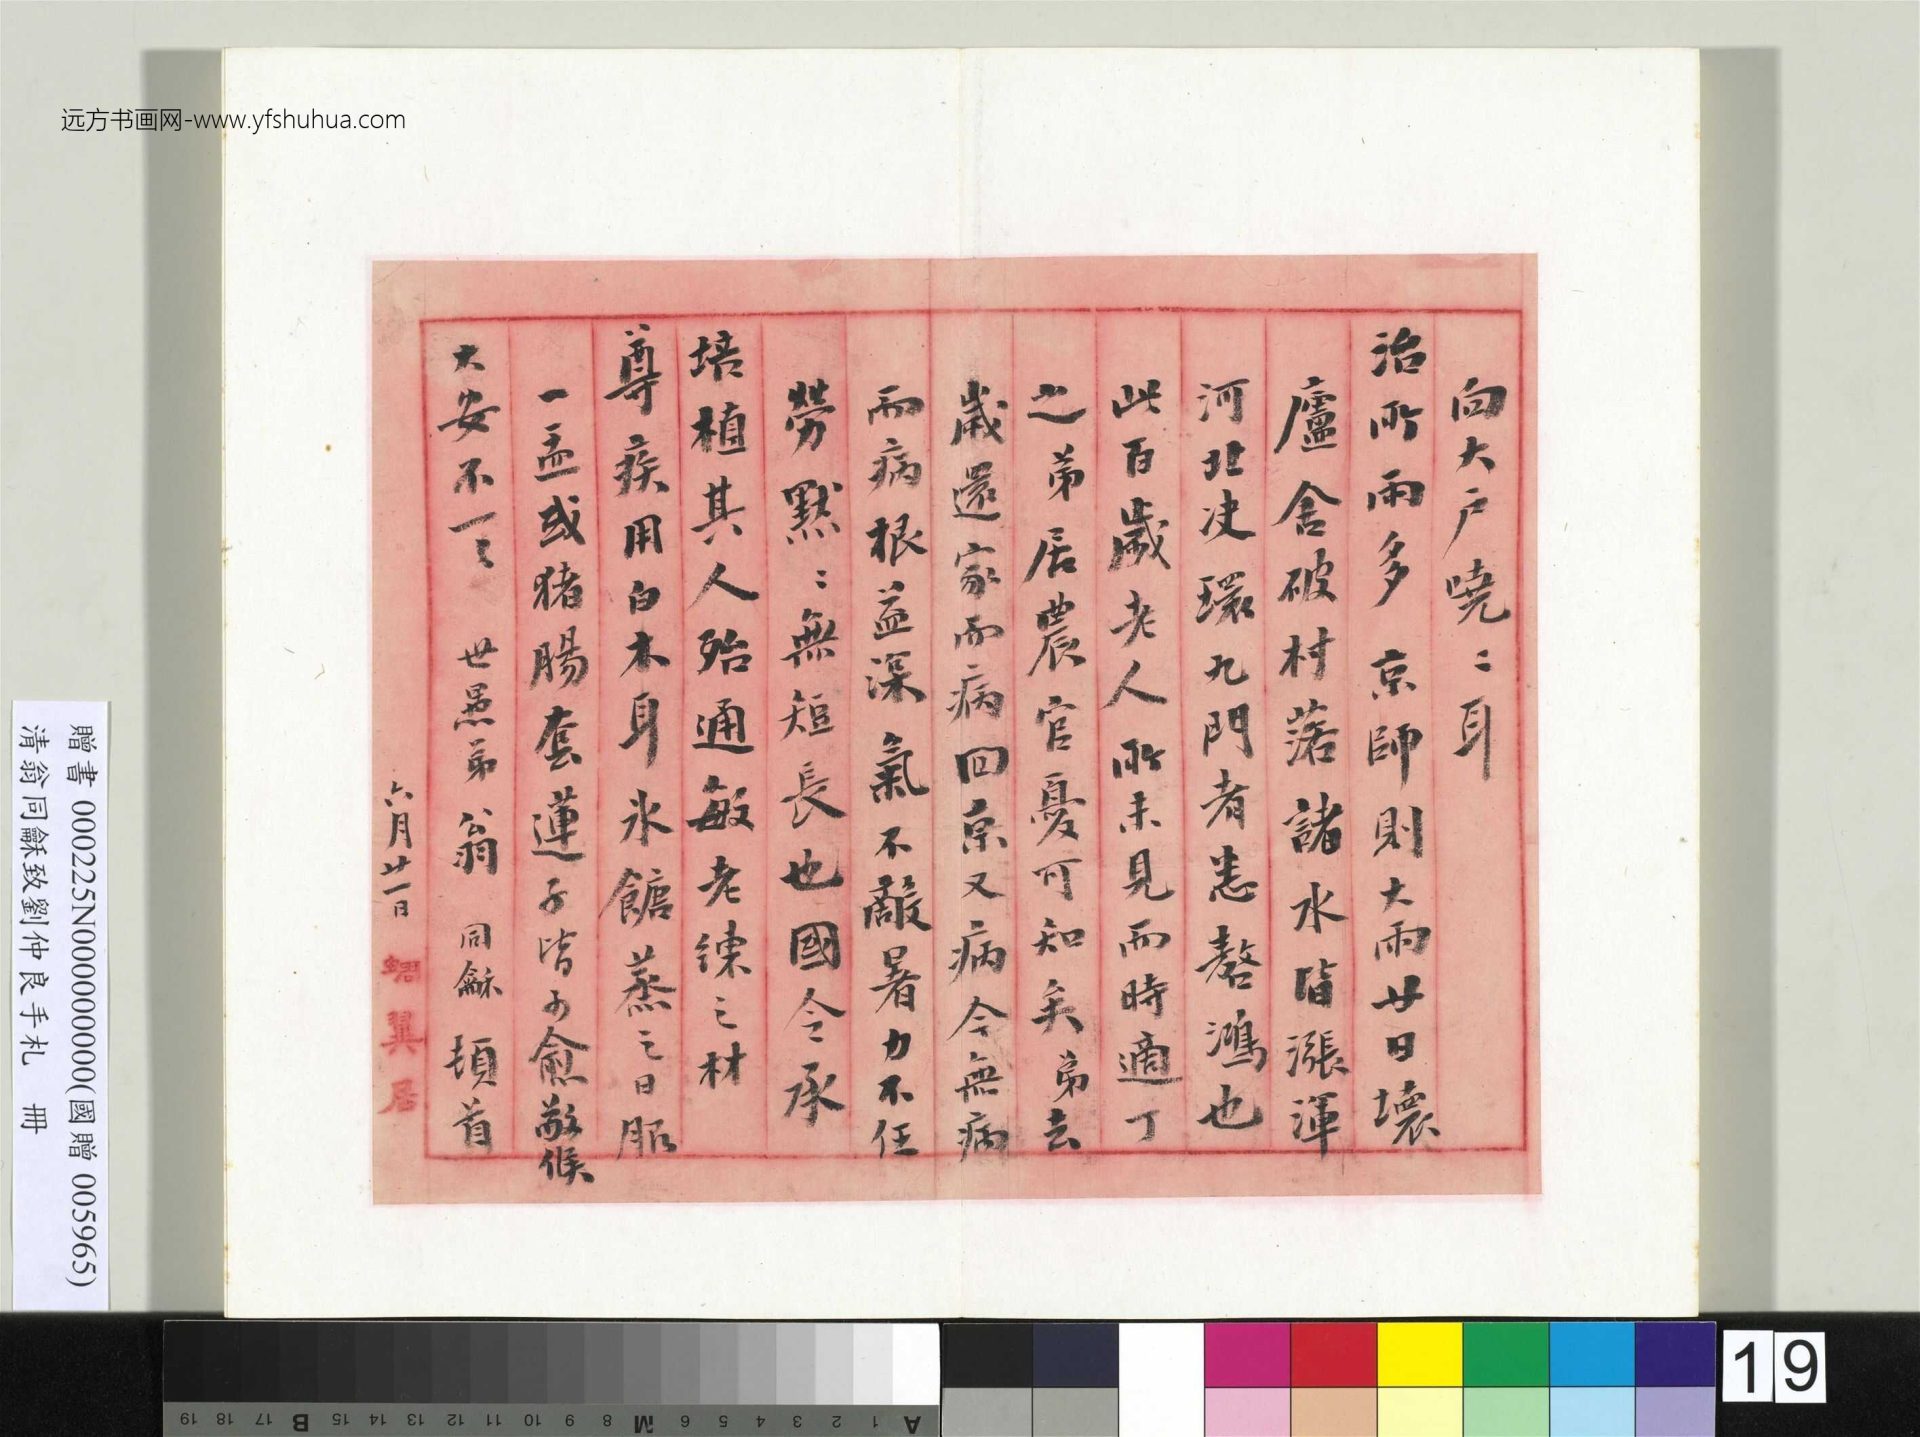 远方书画网-www.yfshuhua.com
向大戶嘵〻耳
治所雨多京師則大雨廿日壞
廬舍破村落諸水皆漲渾
河北决環九門者悉嗸鴻也
此百歲老人所未見而時適丁
之弟居農官憂可知矣弟去
歲還家而病回京又病今無病
而病根益深氣不敵暑力不任
勞默〻無短長也國令承
培植其人殆通敏老練之材
尊疾用白木耳氷餹蒸之日服
一盂或猪腸套蓮子皆可愈敬候
大安不一〻 世愚弟翁同龢頓首
六月廿一日
蜩翼居
贈書 000225N000000000(國贈 005965)
清翁同龢致劉仲良手札 冊
19
A 1 2 3 4 5 6 M 8 9 10 11 12 13 14 15 B 17 18 19